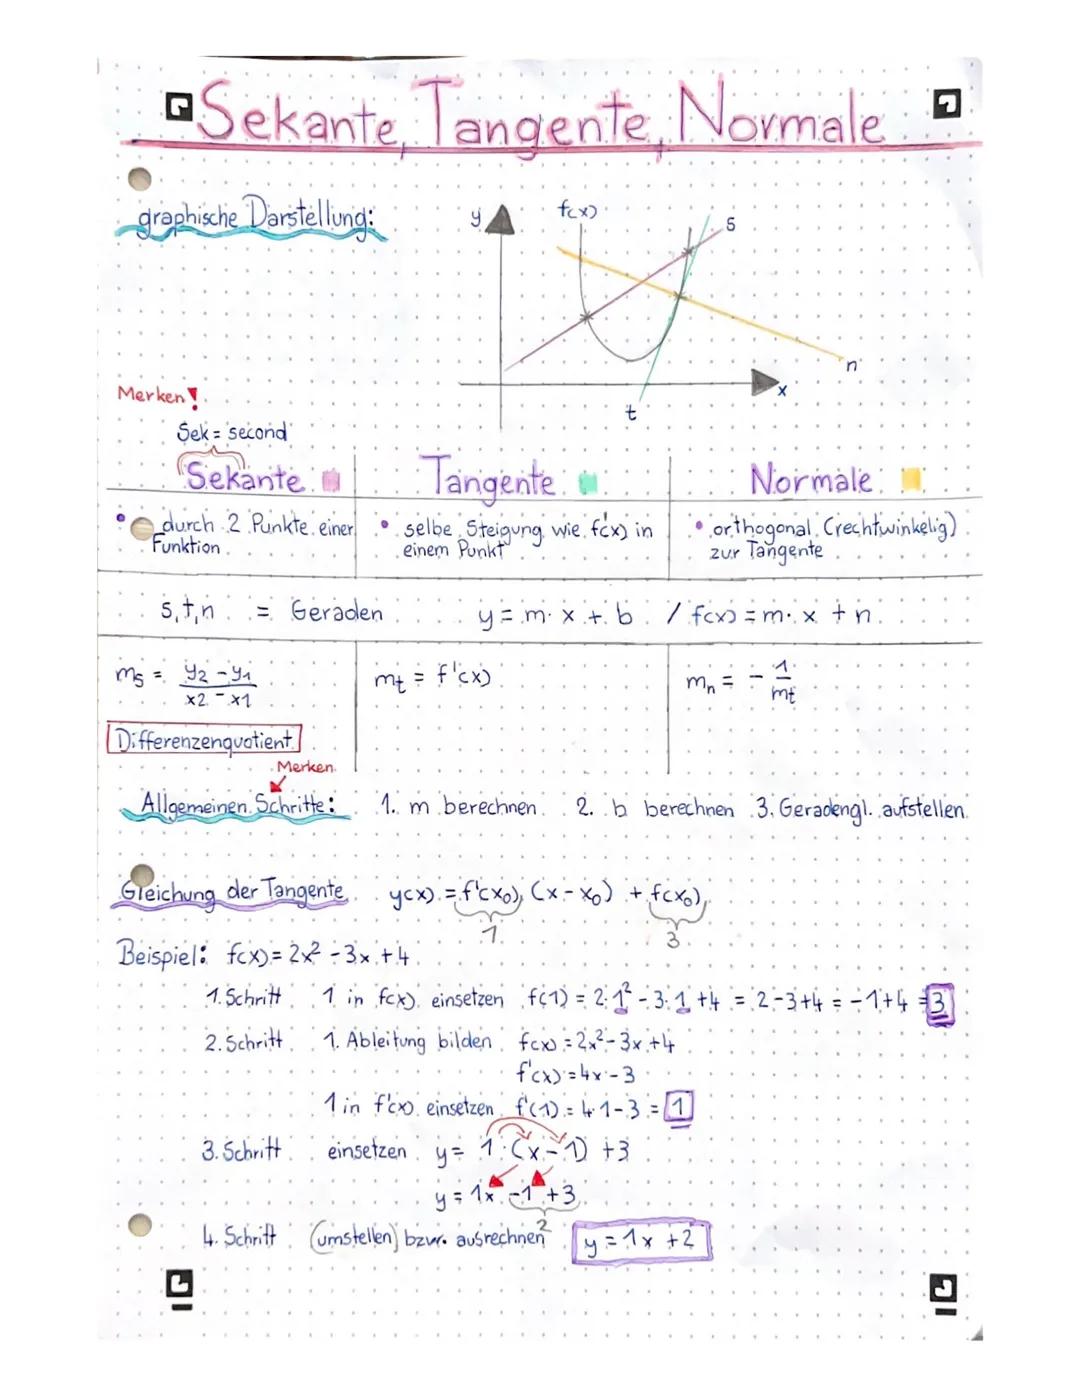 Sekante, Tangente, Normale
graphische Darstellung:
y
f(x)
s
n
x
t
Merken!
Sek = second
Sekante
Tangente
Normale
• durch 2 Punkte einer
Funktion
• selbe Steigung wie f(x) in
einem Punkt
• orthogonal (rechtwinkelig)
zur Tangente
s, t, n = Geraden y = m · x + b / f(x) = m · x + n
ms = y2 - y1 / x2 - x1
mt = f'(x)
mn = - 1/mt
Differenzenquotient
Merken
Allgemeinen Schritte: 1. m berechnen 2. b berechnen 3. Geradengl. aufstellen
Gleichung der Tangente y(x) = f'(x0) (x - x0) + f(x0)
1 3
Beispiel: f(x) = 2x² - 3x + 4
1. Schritt 1 in f(x) einsetzen f(1) = 2·1² - 3·1 + 4 = 2-3+4 = -1+4 = 3
2. Schritt 1. Ableitung bilden f(x) = 2x² - 3x + 4
f'(x) = 4x - 3
1 in f'(x) einsetzen f'(1) = 4·1-3 = 1
3. Schritt einsetzen y = 1·(x-1) + 3
y = 1x -1 +3
2
4. Schritt (umstellen) bzw. ausrechnen y = 1x + 2